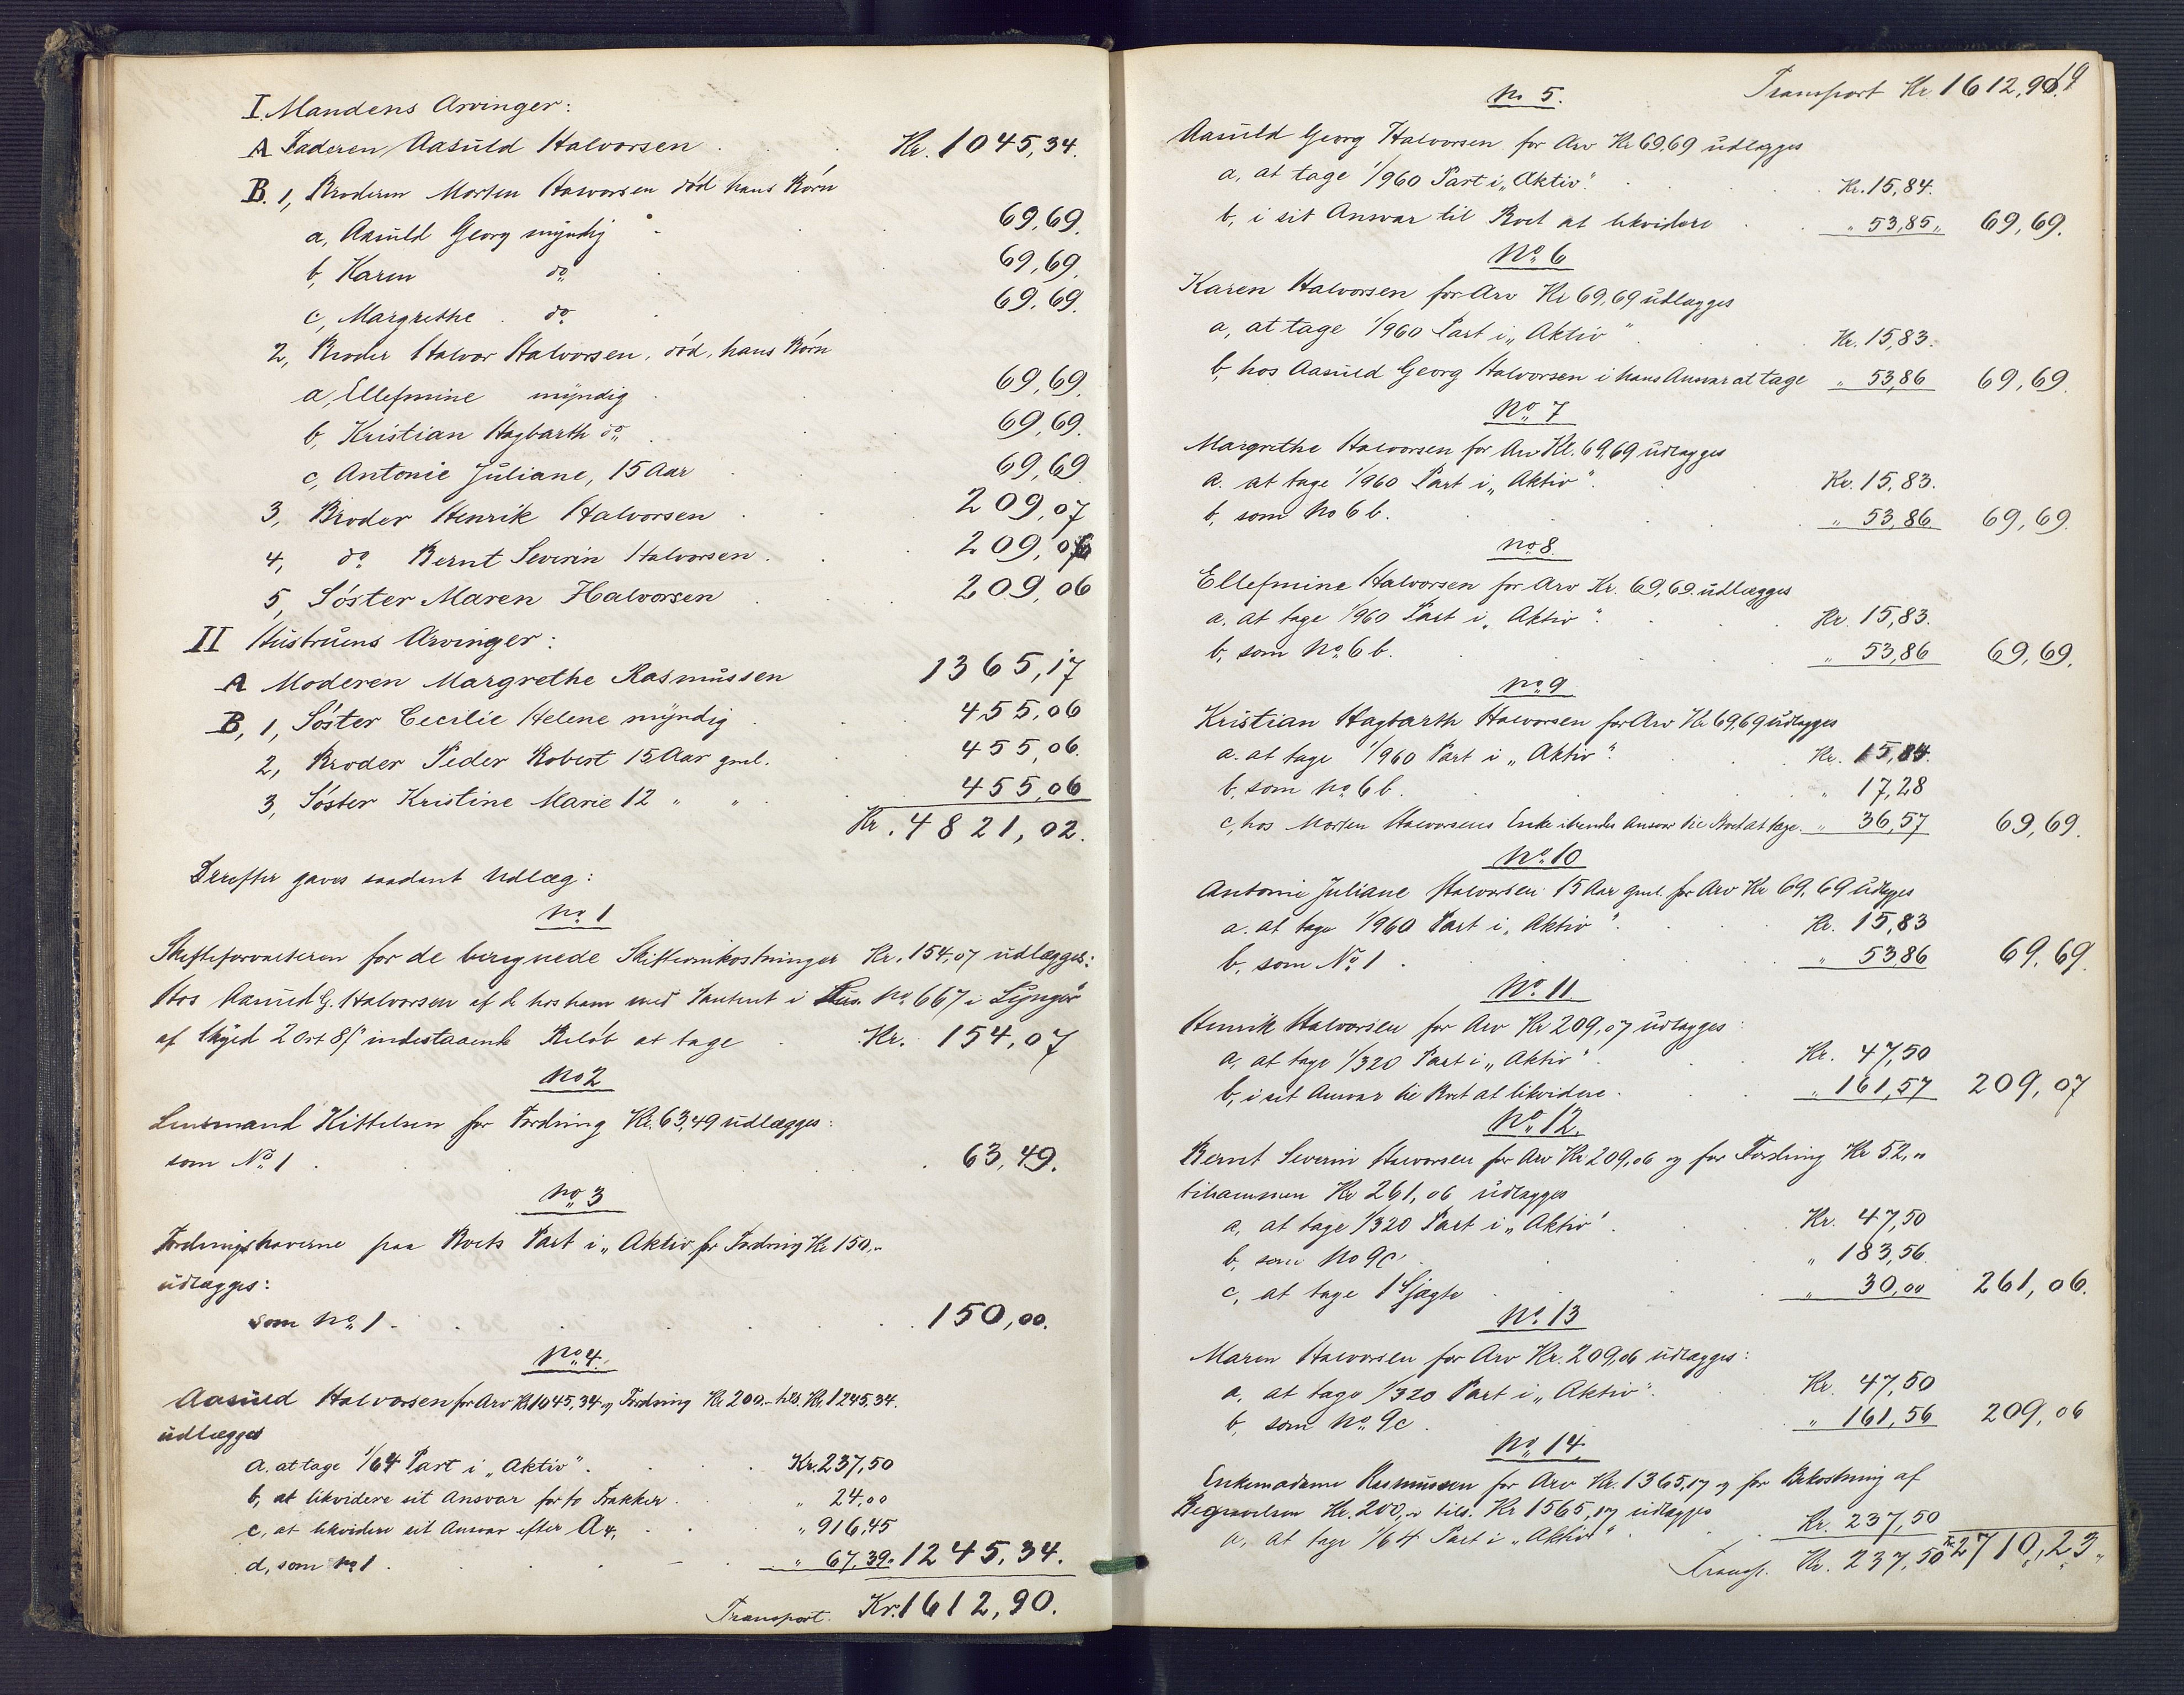 I. Mandens Arvinger:
A Faderen Aasuld Halvorsen . . . Kr. 1045,34.
B. 1, Broderen Morten Halvorsen död hans Börn
a, Aasuld Georg myndig . 69,69.
b, Karen do . 69,69.
c, Margrethe . do . 69,69.
2, Broder Halvor Halvorsen, död, hans Börn
a, Ellefmine myndig . 69,69.
b, Kristian Hagbarth do . 69,69.
c, Antonie Juliane, 15 Aar . 69,69
3, Broder Henrik Halvorsen . . 209,07
4, do Bernt Severin Halvorsen . . 209,06
5, Söster Maren Halvorsen . . 209,06
II Hustruens Arvinger:
A Moderen Margrethe Rasmussen 1365,17
B, 1, Söster Cecilie Helene myndig . . 455,06
2, Broder Peder Robert 15 Aar gml. . 455,06.
3, Söster Kristine Marie 12 " " . 455,06
Kr. 4821,02.
Derefter gaves saadant Udlæg:
No 1
Skifteforvalteren for de beregnede Skifteomkostninger Kr. 154,07 udlægges:
Hos Aasuld G. Halvorsen af de hos ham med Panteret i Hus No 667 i Lyngör
af Skyld 2 Ort 8 ß indestaaende Belöb at tage . Kr. 154,07
No 2
Lensmand Kittelsen for Fordring Kr. 63,49 udlægges:
som No 1 . . . 63,49.
No 3
Fordringshaverne paa Boets Part i „Aktiv" for Fordring Kr 150,-
udlægges:
som No 1 . . . . 150,00.
No 4.
Aasuld Halvorsen for Arv Kr 1045,34 og Fordring Kr 200,- tils. Kr. 1245,34.
udlægges
a. at tage 1/64 Part i „Aktiv". . . Kr. 237,50
b, at likvidere sit Ansvar for to Frakker . " 24,00
c, at likvidere sit Ansvar efter A 4, . . " 916,45
d, som No 1 . . . " 67,39. 1245,34.
Transport. Kr. 1612,90.
19
Transport Kr 1612,90.
No 5.
Aasuld Georg Halvorsen for Arv Kr 69,69 udlægges
a, at tage 1/960 Part i „Aktiv". . . Kr. 15,84.
b, i sit Ansvar til Boet at likvidere . " 53,85,, 69,69.
No 6
Karen Halvorsen for Arv Kr 69,69 udlægges
a, at tage 1/960 Part i „Aktiv" . . Kr. 15,83.
b, hos Aasuld Georg Halvorsen i hans Ansvar at tage " 53,86 69,69.
No 7
Margrethe Halvorsen for Arv Kr. 69,69 udlægges
a. at tage 1/960 Part i „Aktiv". . Kr. 15,83.
b, som No 6 b. . . " 53,86 69,69.
No 8.
Ellefmine Halvorsen for Arv Kr. 69,69. udlægges
a. at tage 1/960 Part i „Aktiv". . . Kr. 15,83.
b, som No 6 b. . . " 53,86 69,69.
No 9
Kristian Hagbarth Halvorsen for Arv Kr 69,69 udlægges
a. at tage 1/960 Part i „Aktiv". . . Kr. 15,84.
b, som No 6 b. . . " 17,28
c, hos Morten Halvorsens Enke i hendes Ansvar til Boet at tage. " 36,57 69,69.
No 10
Antonie Juliane Halvorsen 15 Aar gml. for Arv Kr 69,69 udlægges
a. at tage 1/960 Part i „Aktiv". . . Kr. 15,83
b, som No 1 . . . " 53,86 69,69.
No 11.
Henrik Halvorsen for Arv Kr 209,07 udlægges:
a, at tage 1/320 Part i „Aktiv". . . Kr. 47,50
b, i sit Ansvar til Boet at likvidere . . " 161,57 209,07
No 12.
Bernt Severin Halvorsen for Arv Kr 209,06 og for Fordring Kr 52,"
tilsammen Kr 261,06 udlægges
a, at tage 1/320 Part i „Aktiv". . Kr. 47,50
b, som No 9c . . " 183,56
c, at tage 1 Sjægte . . " 30,00 261,06.
No 13
Maren Halvorsen for Arv Kr. 209,06 udlægges:
a. at tage 1/320 Part i „Aktiv". . Kr. 47,50
b, som No 9c . . " 161,56 209,06
No 14.
Enkemadame Rasmussen for Arv Kr. 1365,17 og for Bekostning af
Begravelsen Kr. 200,- tils. Kr 1565,17 udlægges
a, at tage 1/64 Part i „Aktiv" . . Kr. 237,50
Transp. Kr. 237,50 Kr. 2710,23,,